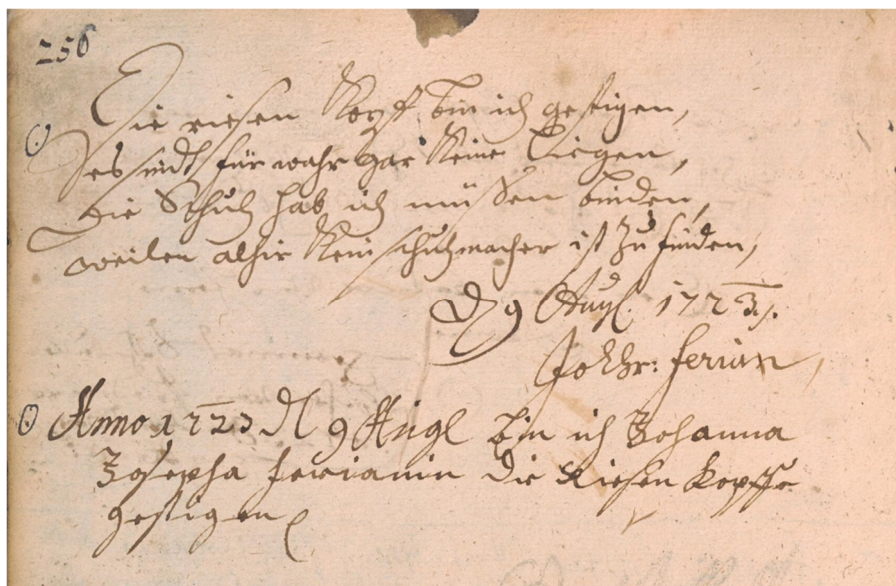 256
Die riesen Kopf bin ich gestigen,
es sindt für wahr gar keine Ligen,
die Schuh hab ich müssen binden,
weilen alhir kein schuhmacher ist zu finden,
D 9 Aug. 1723.
ferian
Anno 1723 D 9 Augl bin ich Johanna
Josepha ferianin die Riesen kopffe
gestigen